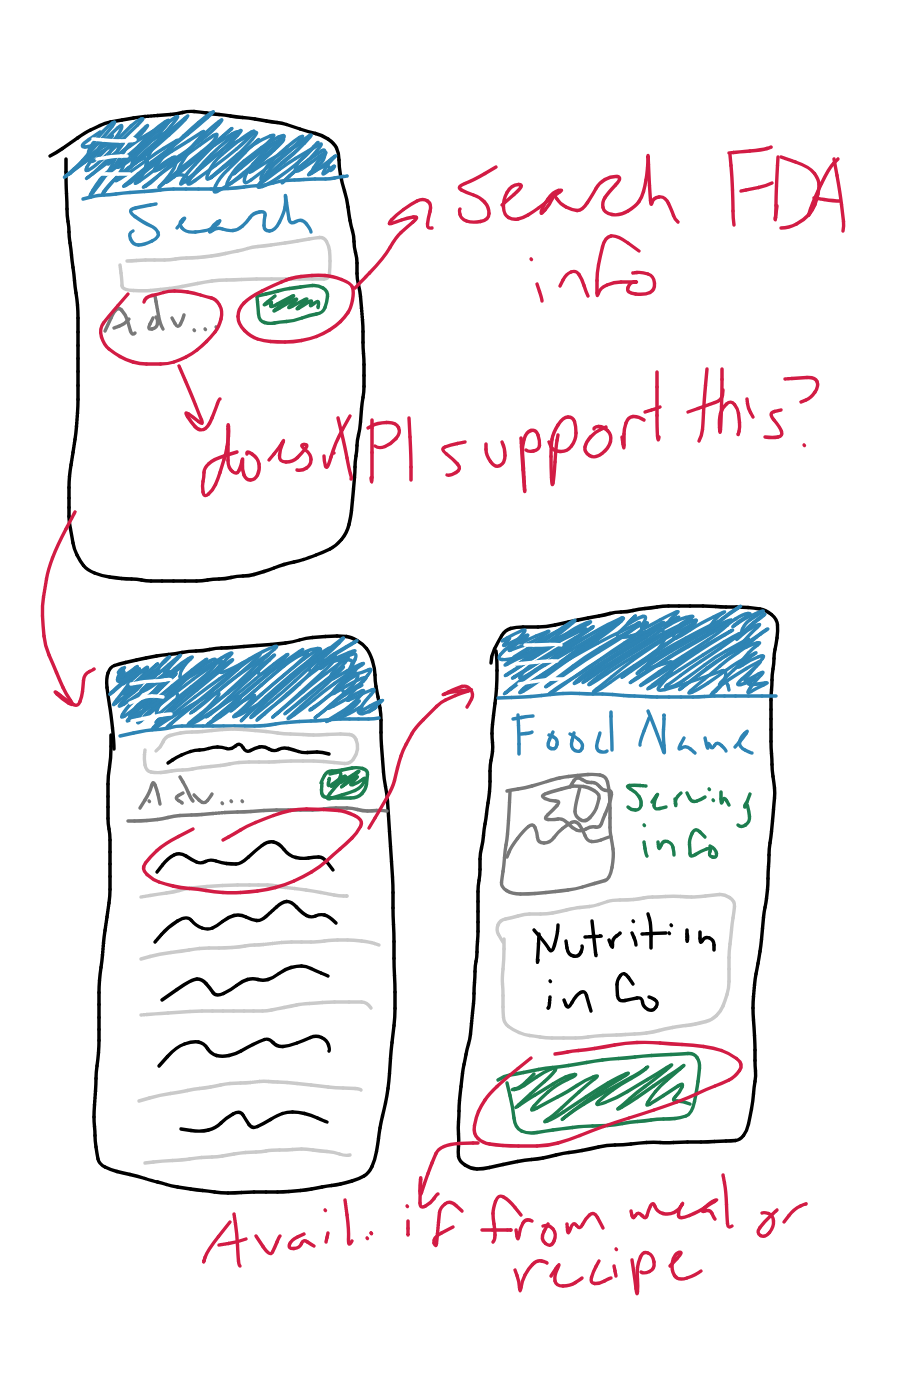 Search
Adv...
Search FDA
info
does API support this?
Adv...
Food Name
Serving
info
Nutritin
info
Avail. if from meal or
recipe